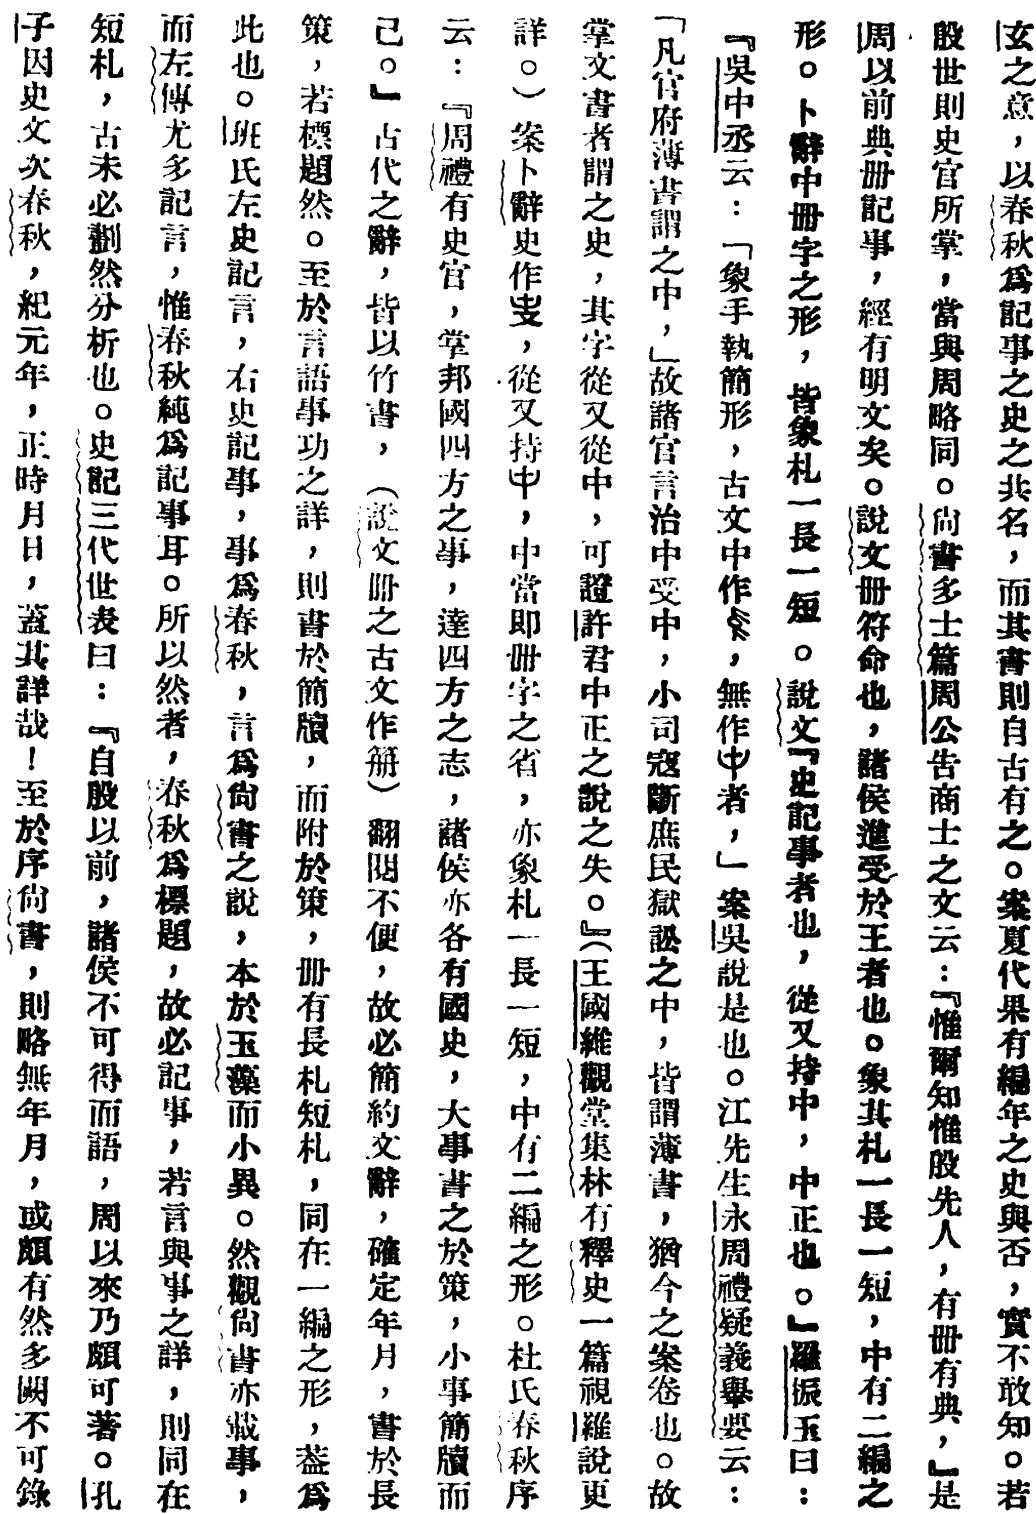 玄之意，以春秋爲記事之史之共名，而其書則自古有之。案夏代果有編年之史與否，實不敢知。若
殷世則史官所掌，當與周略同。尙書多士篇周公告商士之文云：『惟爾知惟殷先人，有册有典，』是
周以前典册記事，經有明文矣。說文册符命也，諸侯進受於王者也。象其札一長一短，中有二編之
形。卜辭中册字之形，皆象札一長一短。說文『史記事者也，從又持中，中正也。』羅振玉曰：
『吳中丞云：「象手執簡形，古文中作，無作者，」案吳說是也。江先生永周禮疑義舉要云：
「凡官府薄書謂之中，」故諸官言治中受中，小司寇斷庶民獄訟之中，皆謂薄書，猶今之案卷也。故
掌文書者謂之史，其字從又從中，可證許君中正之說之失。』（王國維觀堂集林有釋史一篇視羅說更
詳。）案卜辭史作，從又持，中當即册字之省，亦象札一長一短，中有二編之形。杜氏春秋序
云：『周禮有史官，掌邦國四方之事，達四方之志，諸侯亦各有國史，大事書之於策，小事簡牘而
已。』古代之辭，皆以竹書，（說文册之古文作笧）翻閱不便，故必簡約文辭，確定年月，書於長
策，若標題然。至於言語事功之詳，則書於簡牘，而附於策，册有長札短札，同在一編之形，蓋爲
此也。班氏左史記言，右史記事，事爲春秋，言爲尙書之說，本於玉藻而小異。然觀尙書亦載事，
而左傳尤多記言，惟春秋純爲記事耳。所以然者，春秋爲標題，故必記事，若言與事之詳，則同在
短札，古未必劃然分析也。史記三代世表曰：『自殷以前，諸侯不可得而語，周以來乃頗可著。孔
子因史文次春秋，紀元年，正時月日，蓋其詳哉！至於序尙書，則略無年月，或頗有然多闕不可錄